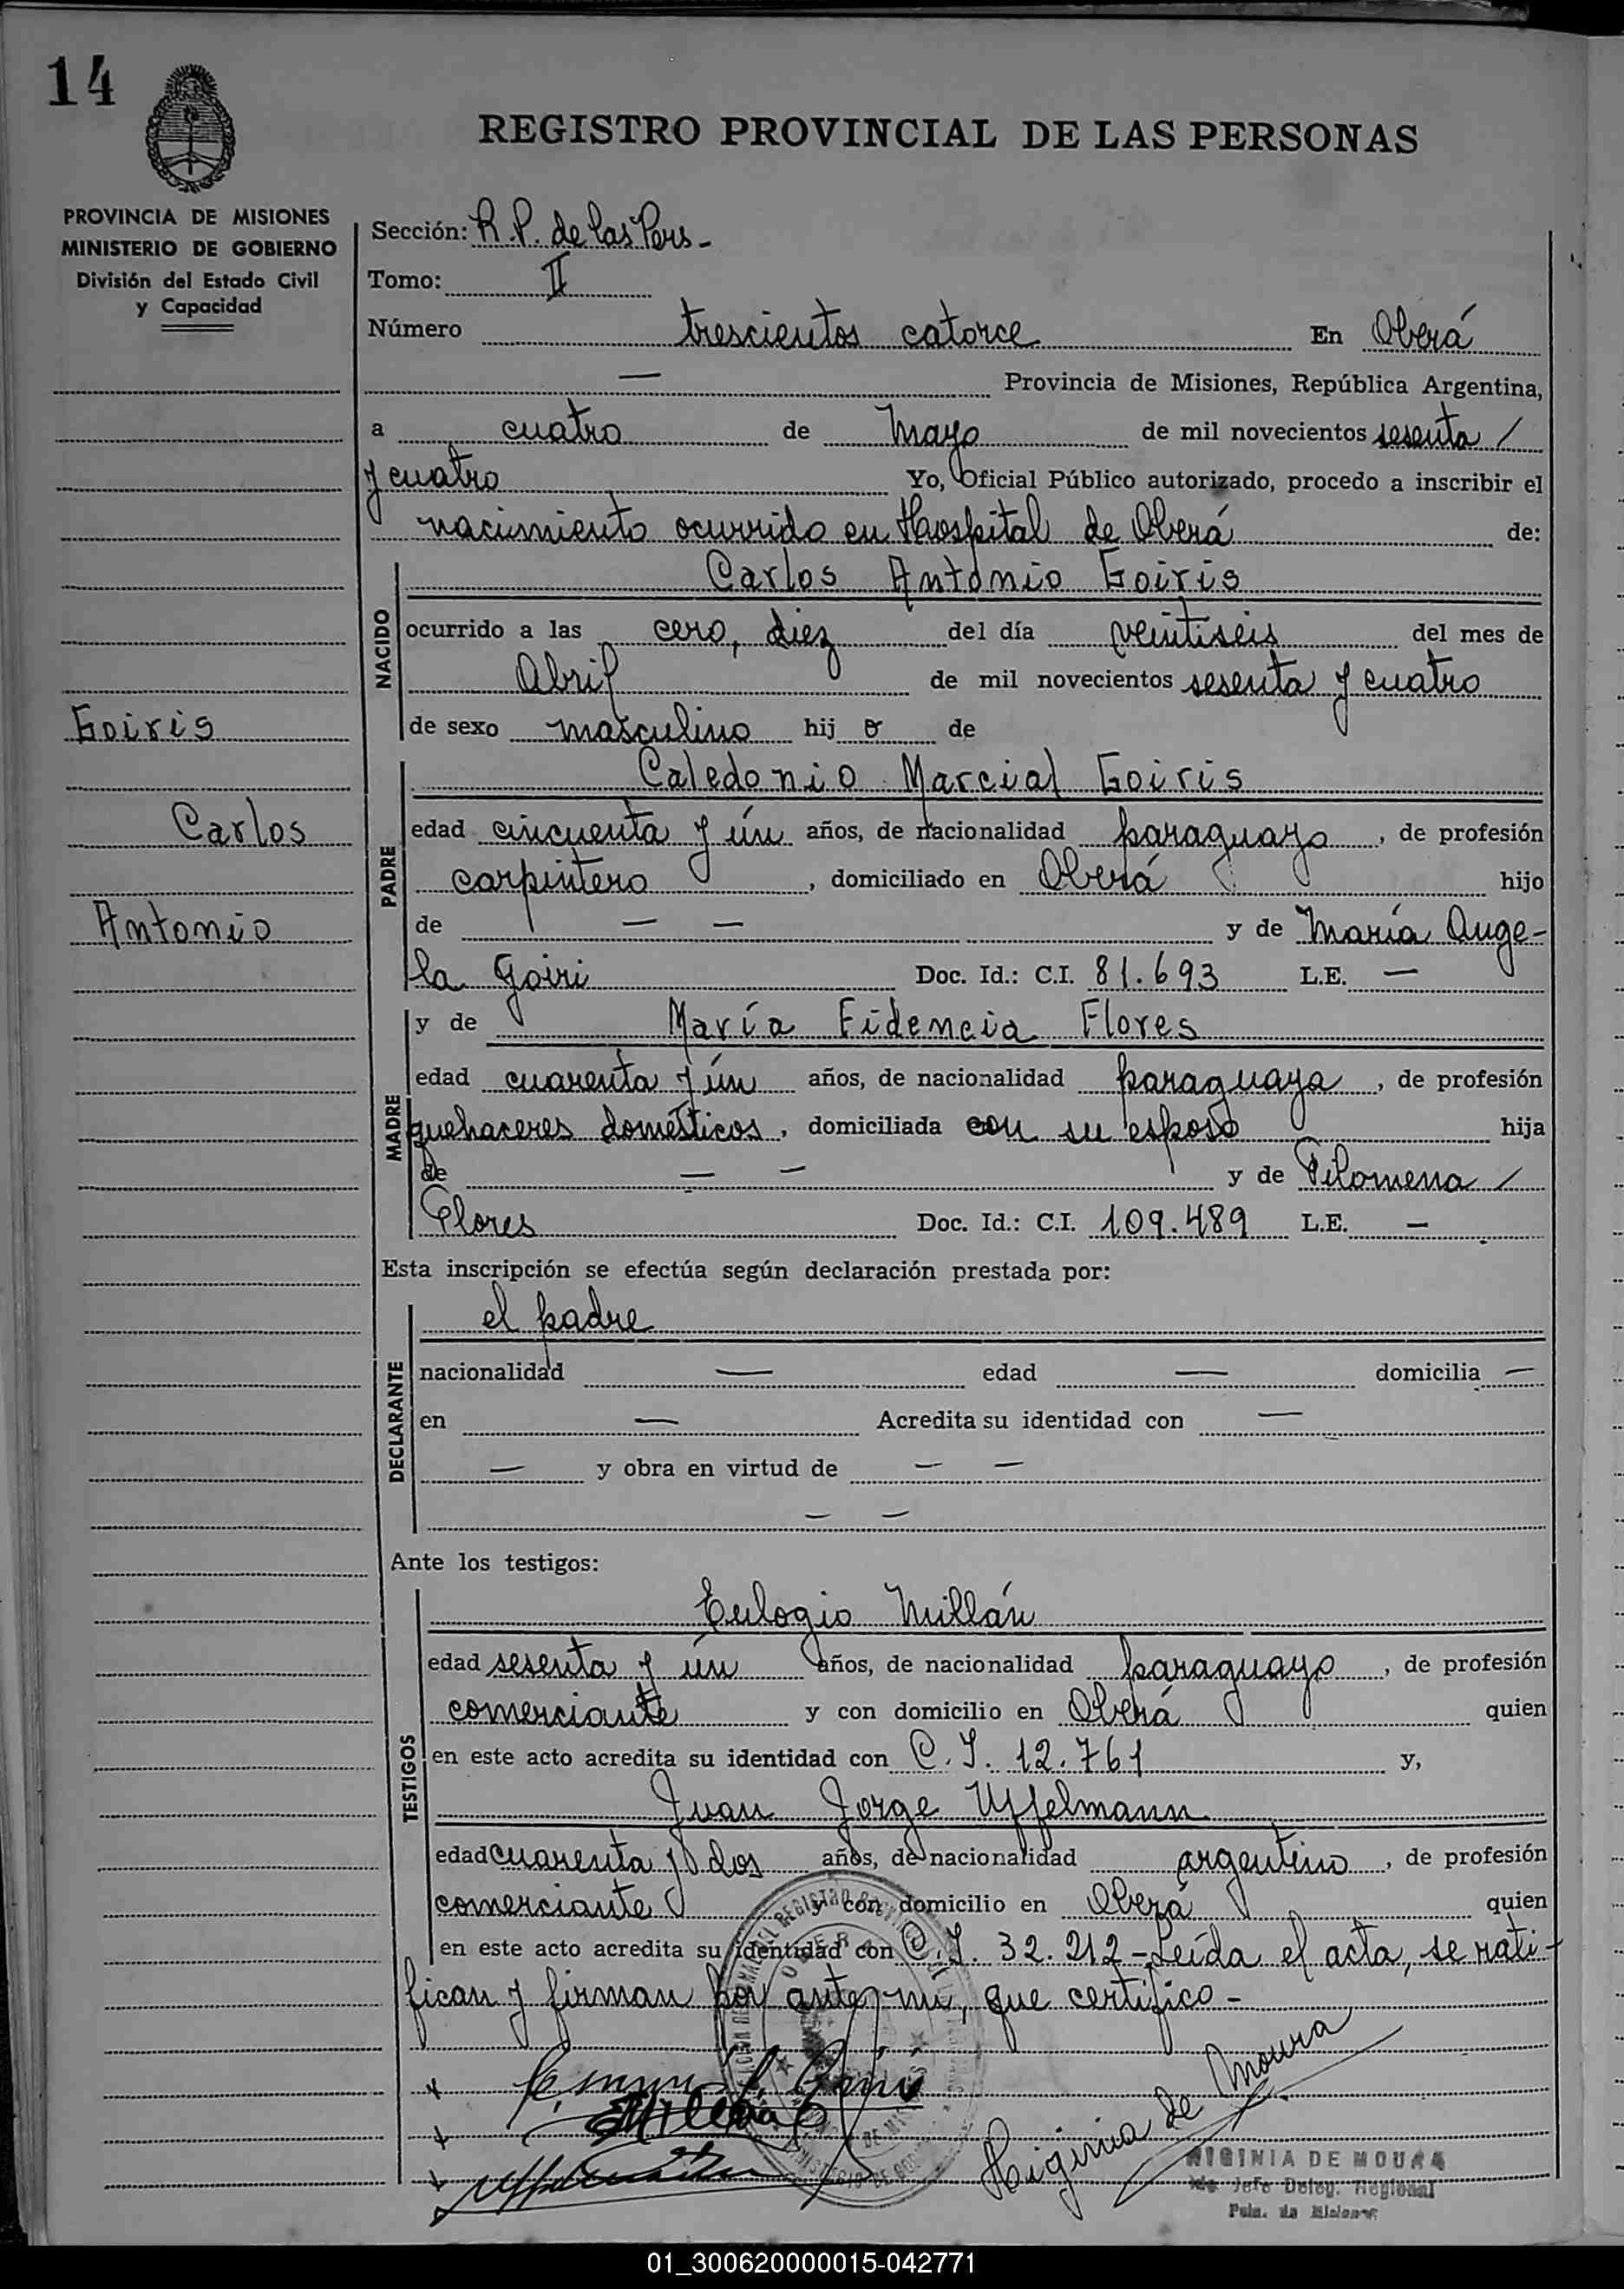 14
REGISTRO PROVINCIAL DE LAS PERSONAS
PROVINCIA DE MISIONES
MINISTERIO DE GOBIERNO
División del Estado Civil
y Capacidad
Sección: R.P. de las Pers -
Tomo: II
Número trescientos catorce En Oberá
— Provincia de Misiones, República Argentina,
a cuatro de Mayo de mil novecientos sesenta /
y cuatro Yo, Oficial Público autorizado, procedo a inscribir el
nacimiento ocurrido en Hospital de Oberá de:
NACIDO
Carlos Antonio Goiris
ocurrido a las cero, diez del día veintiseis del mes de
Abril de mil novecientos sesenta y cuatro
de sexo masculino hij o de
Goiris
Carlos
Antonio
PADRE
Caledonio Marcial Goiris
edad cincuenta y ún años, de nacionalidad paraguayo, de profesión
carpintero, domiciliado en Oberá hijo
de — — y de María Ange-
la Goiri Doc. Id.: C.I. 81.693 L.E. —
MADRE
y de María Fidencia Flores
edad cuarenta y ún años, de nacionalidad paraguaya, de profesión
quehaceres domésticos, domiciliada con su esposo hija
de — — y de Filomena /
Flores Doc. Id.: C.I. 109.489 L.E. —
Esta inscripción se efectúa según declaración prestada por:
DECLARANTE
el padre
nacionalidad — edad — domicilia —
en — Acredita su identidad con —
— y obra en virtud de — —
— —
Ante los testigos:
TESTIGOS
Eulogio Millán
edad sesenta y ún años, de nacionalidad paraguayo, de profesión
comerciante y con domicilio en Oberá quien
en este acto acredita su identidad con C.I. 12.761 y,
Juan Jorge Uffelmann
edad cuarenta y dos años, de nacionalidad argentino, de profesión
comerciante y con domicilio en Oberá quien
en este acto acredita su identidad con C.I. 32.212 - Leída el acta, se rati-
fican y firman por ante mí, que certifico -
Higinia de Moura
HIGINIA DE MOURA
Jefe Deleg. Regional
Pcia. de Misiones
01_300620000015-042771